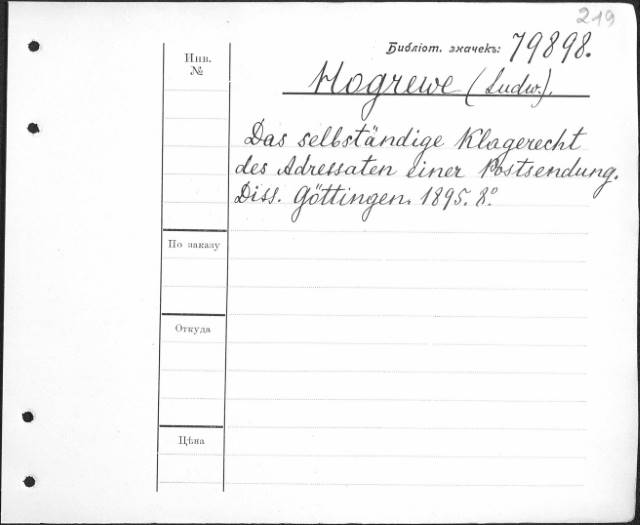 219
Библіот. значекъ: 79898.
Инв.
№
Hogrewe (Ludw.).
Das selbständige Klagerecht
des Adressaten einer Postsendung.
Diss. Göttingen. 1895. 8º.
По заказу
Откуда
Цѣна